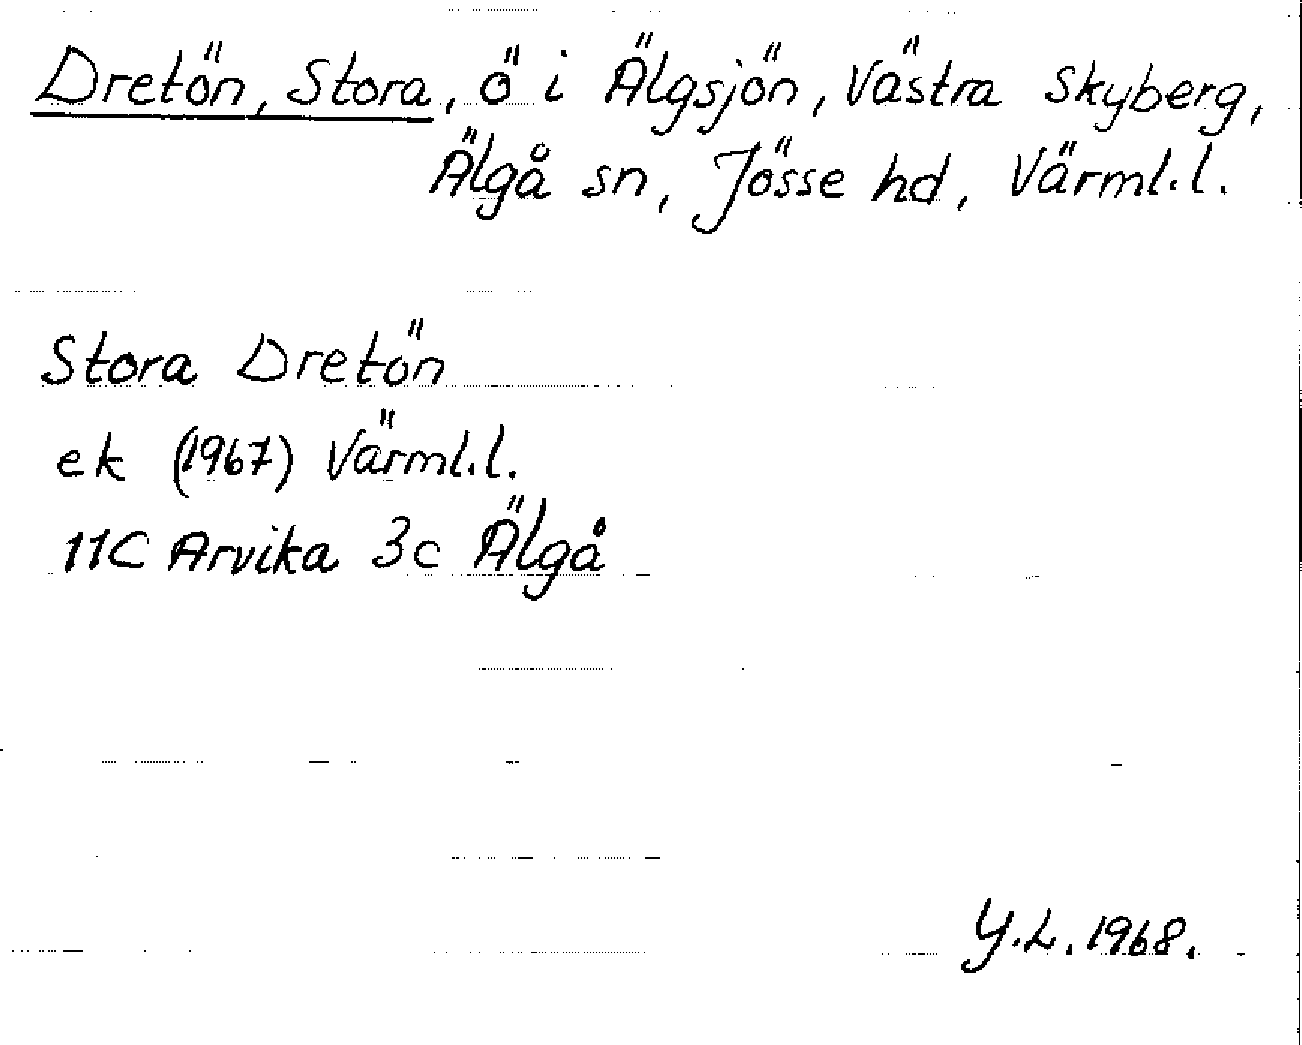 Dretön, Stora, ö i Älgsjön, Västra Skyberg,
Älgå sn, Jösse hd, Värml.l.
Stora Dretön
ek (1967) Värml.l.
11C Arvika 3c Älgå
Y.L. 1968.